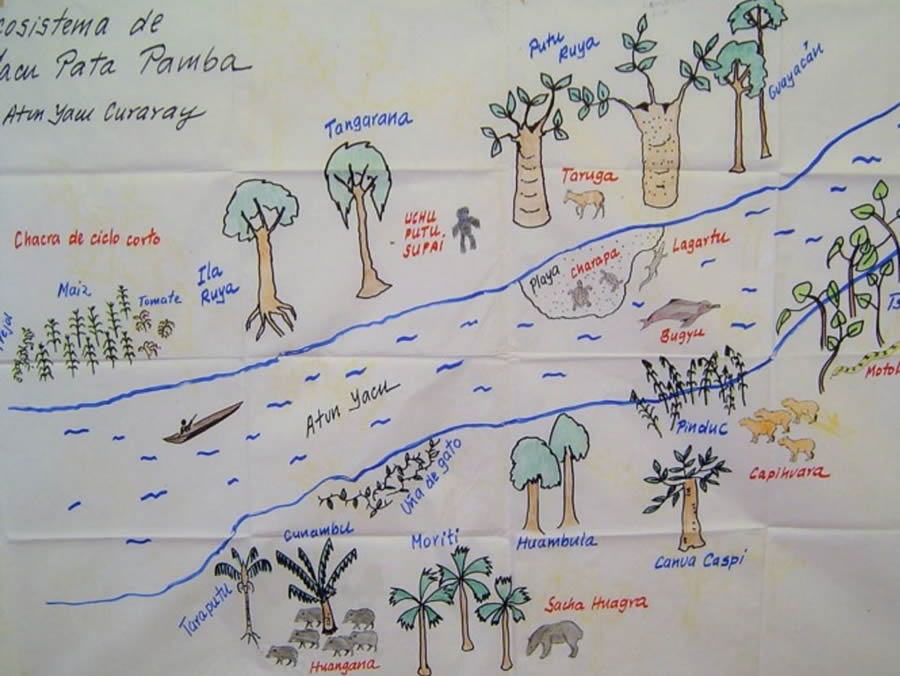 cosistema de
Yacu Pata Pamba
Atun Yacu Curaray
Tangarana
Putu
Ruya
Guayacán
Taruga
UCHU
PUTU.
SUPAI
Chacra de ciclo corto
Ila
Ruya
Maiz
Tomate
Playa
Charapa
Lagartu
Bugyu
Atun Yacu
Pinduc
Capihuara
Uña de gato
Cunambu
Moriti
Huambula
Canua Caspi
Taraputu
Huangana
Sacha Huagra